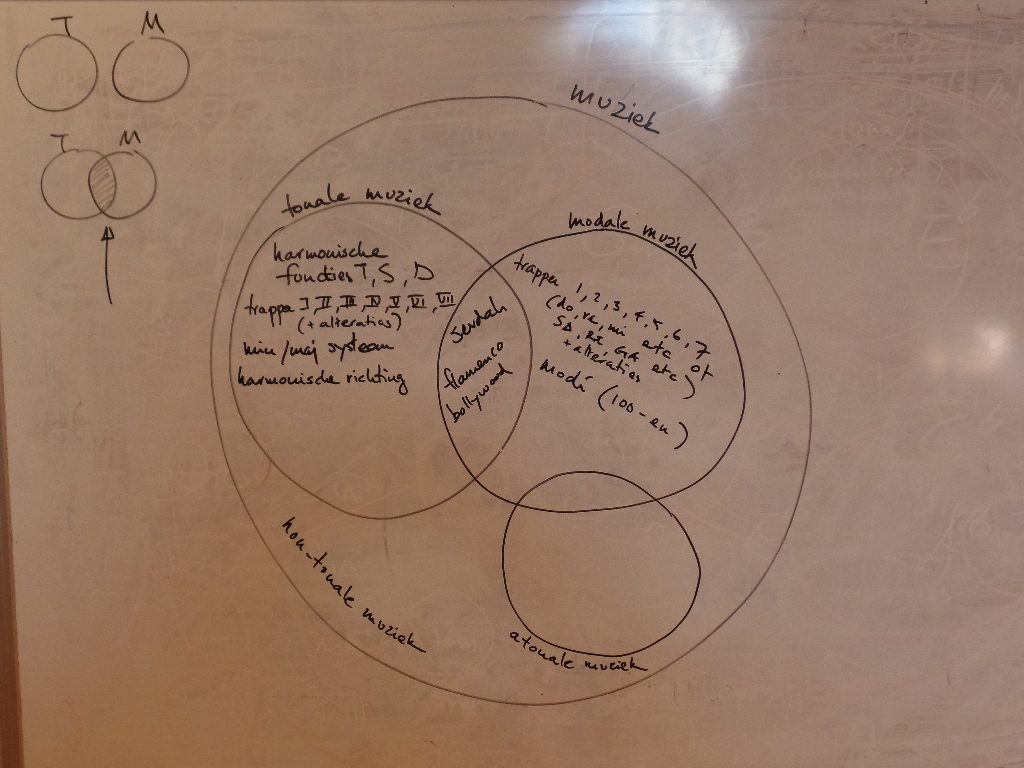 T M
T M
muziek
tonale muziek
harmonische
functies T, S, D
trappen I, II, III, IV, V, VI, VII
(+ alteraties)
min/maj systeem
harmonische richting
sevdah
flamenco
bollywood
modale muziek
trappen 1, 2, 3, 4, 5, 6, 7
(do, re, mi etc of
SA, RE, GA etc)
+ alteraties
modi (100-en)
non-tonale muziek
atonale muziek